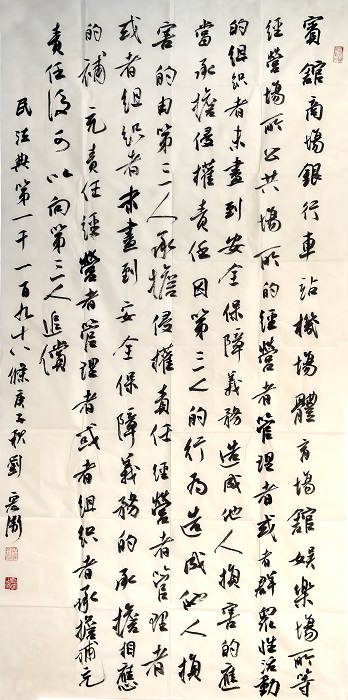 賓館商場銀行車站機場體育場館娛樂場所等
經營場所公共場所的經營者管理者或者群眾性活動
的組織者未盡到安全保障義務造成他人損害的應
當承擔侵權責任因第三人的行為造成他人損
害的由第三人承擔侵權責任經營者管理者
或者組織者未盡到安全保障義務的承擔相應
的補充責任經營者管理者或者組織者承擔補充
責任後可以向第三人追償
民法典第一千一百九十八條庚子秋劉